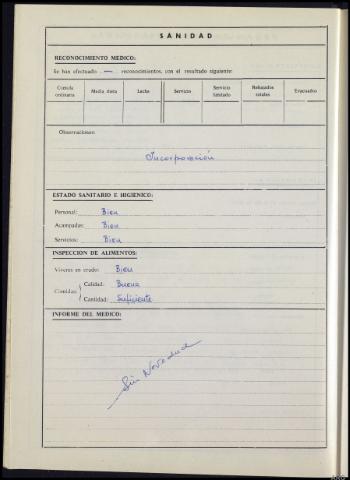 SANIDAD
RECONOCIMIENTO MEDICO:
Se han efectuado — reconocimientos, con el resultado siguiente:
Comida ordinaria Media dieta Leche Servicio Servicio limitado Rebajados totales Evacuados
Observaciones:
Incorporación
ESTADO SANITARIO E HIGIENICO:
Personal: Bien
Acampadas: Bien
Servicios: Bien
INSPECCION DE ALIMENTOS:
Víveres en crudo: Bien
Comidas: Calidad: Buena
Cantidad: Suficiente
INFORME DEL MEDICO:
Sin Novedad